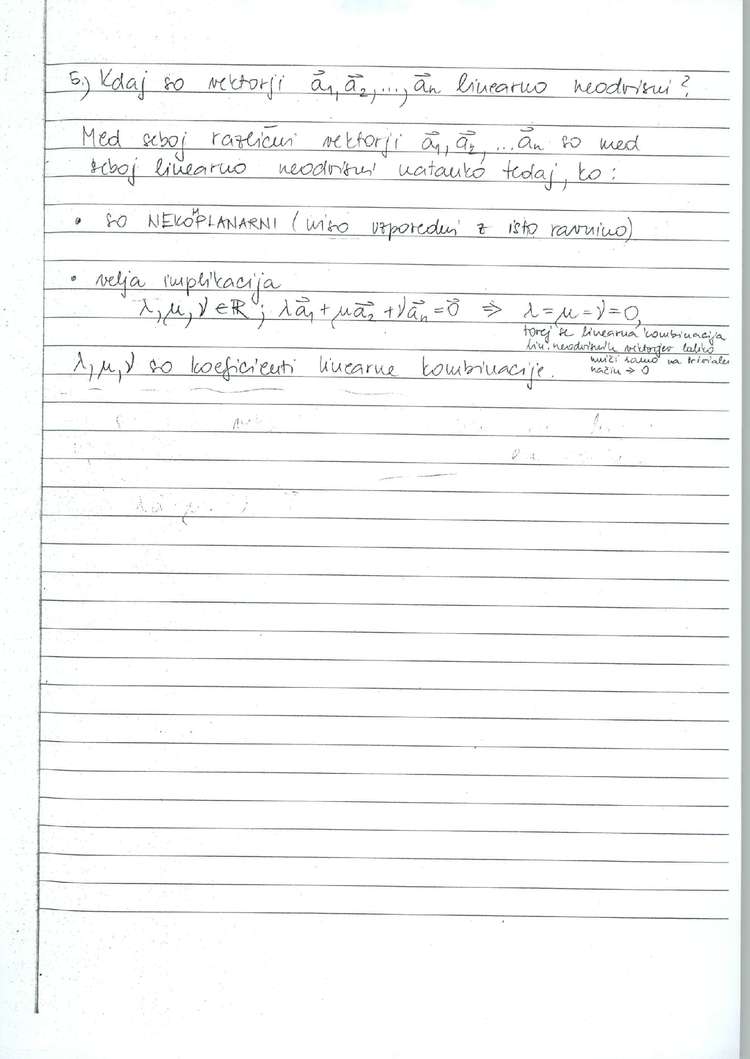 5.) Kdaj so vektorji a⃗₁, a⃗₂, ..., a⃗ₙ linearno neodvisni?
Med seboj različni vektorji a⃗₁, a⃗₂, ... a⃗ₙ so med
seboj linearno neodvisni natanko tedaj, ko:
• so NEKOMPLANARNI (niso vzporedni z isto ravnino)
• velja implikacija
λ, μ, ν ∈ ℝ; λa⃗₁ + μa⃗₂ + νa⃗ₙ = 0⃗ ⇒ λ = μ = ν = 0,
torej se linearna kombinacija
lin. neodvisnih vektorjev lahko
uniči samo na trivialen
način → 0
λ, μ, ν so koeficienti linearne kombinacije.